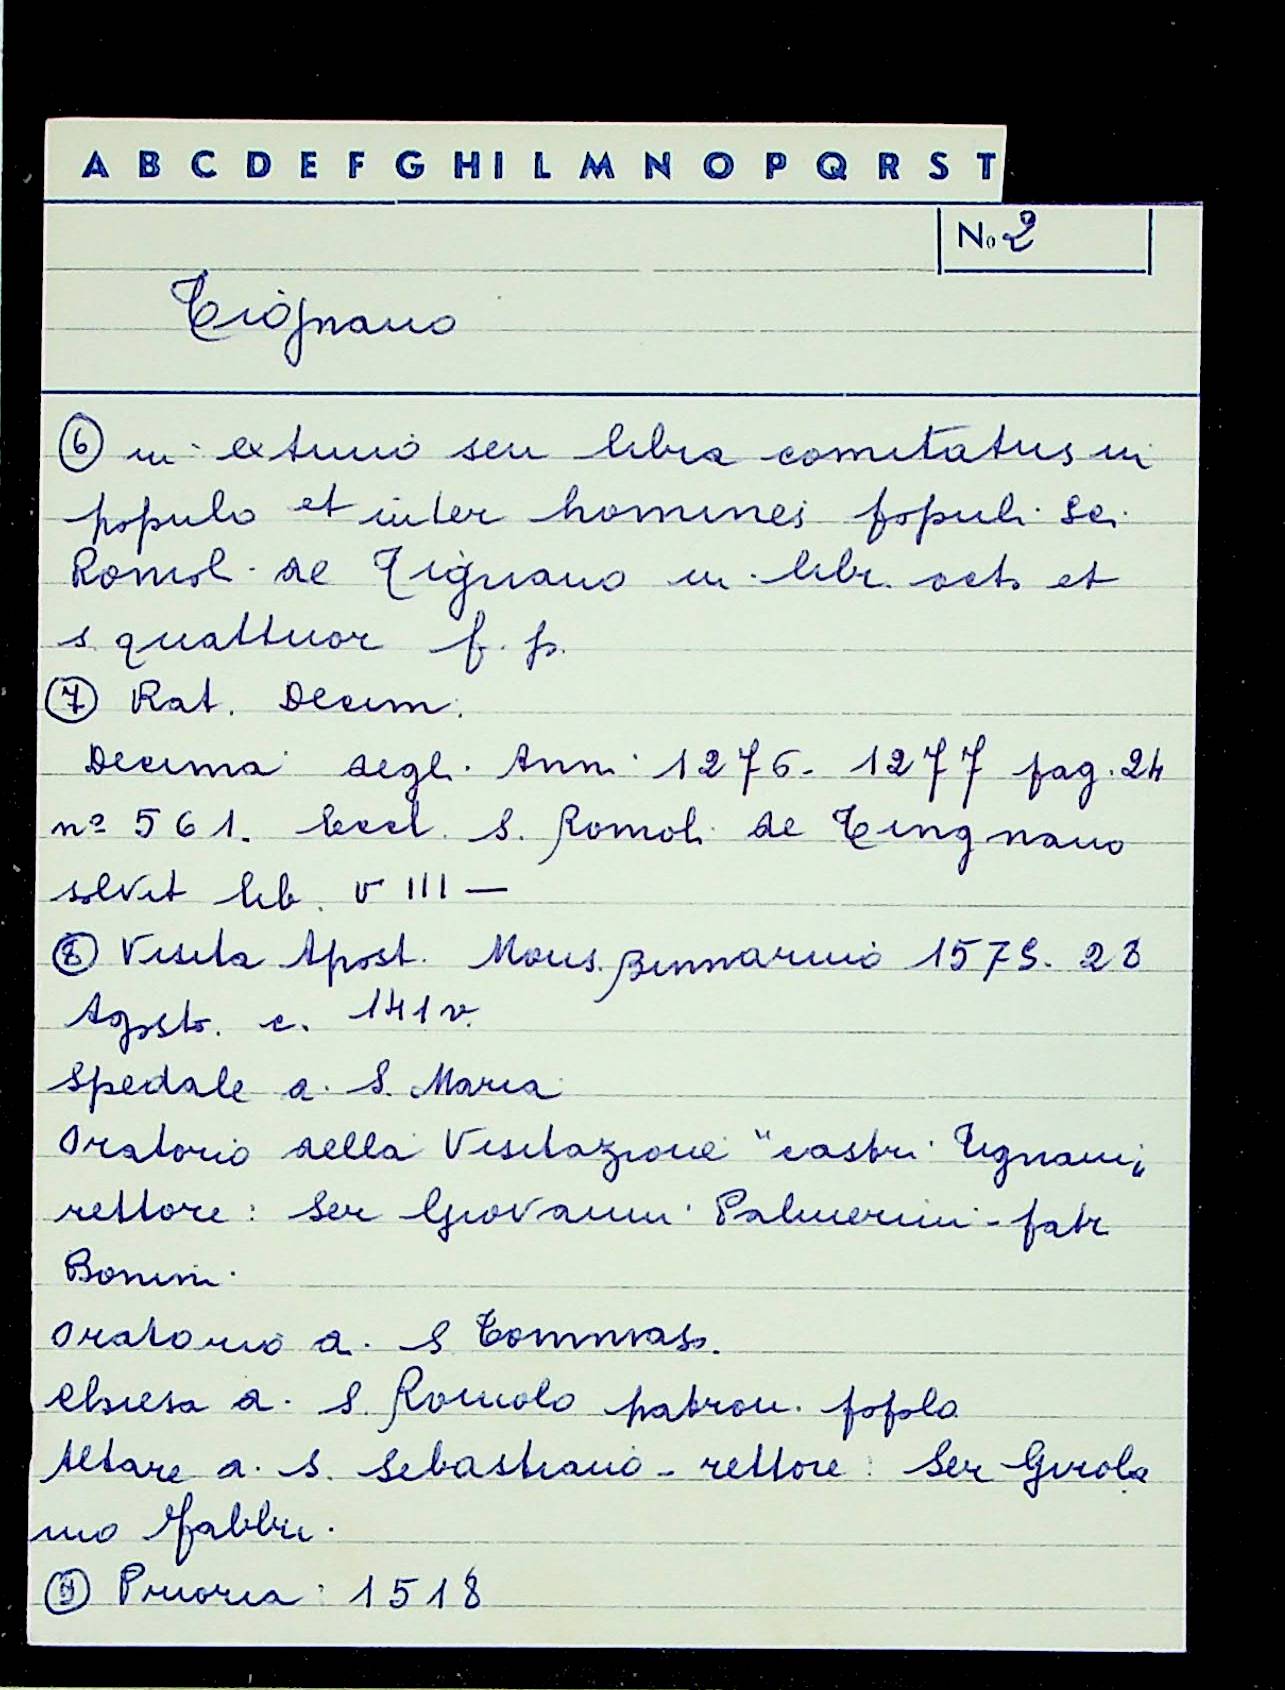 A B C D E F G H I L M N O P Q R S T
No 2
Tignano
⑥ in extimo seu libra comitatus in
populo et inter homines populi Sci
Romoli de Tignano in libr. octo et
s. quattuor f. p.
⑦ Rat. Decim.
Decima degli Anni 1276-1277 pag. 24
nº 561. Eccl. S. Romoli de Tingnano
solvit lib. VIII —
⑧ Visita Apost. Mons. 1575. 28
Agosto. c. 141 v.
Spedale a S. Maria
Oratorio della Visitazione "castri Tignani"
rettore: Ser Giovanni Palmerini - patr
Bonini
Oratorio a S Tommaso.
Chiesa a S. Romolo patron. popolo
Altare a S. Sebastiano - rettore: Ser Girola
mo Fabbri.
⑨ Prioria: 1518